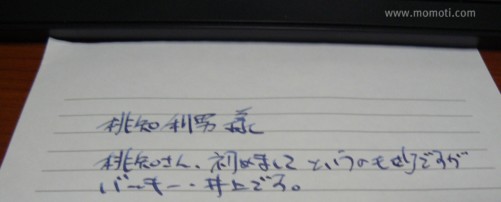 www.momoti.com
桃知利男様
桃知さん、初めましてというのも妙ですが
バーキー・井上です。